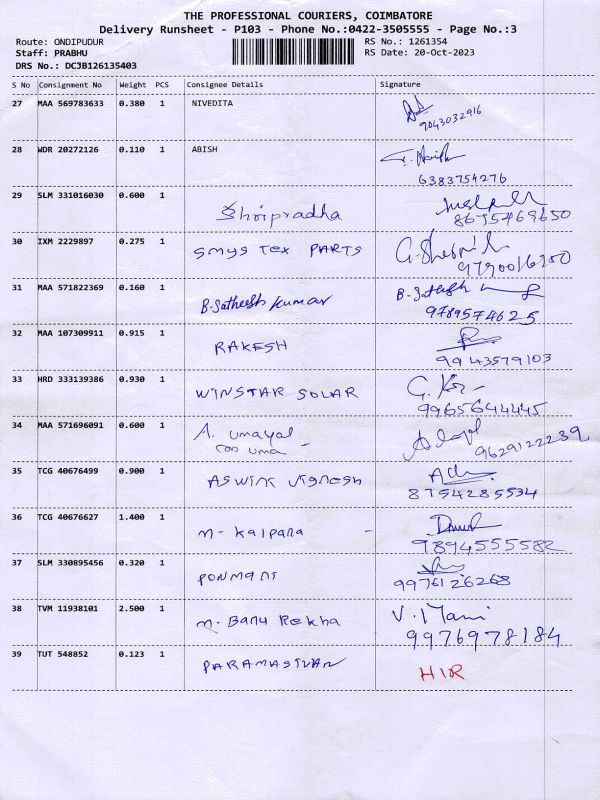 THE PROFESSIONAL COURIERS, COIMBATORE
Delivery Runsheet - P103 - Phone No.:0422-3505555 - Page No.:3
Route: ONDIPUDUR RS No.: 1261354
Staff: PRABHU RS Date: 20-Oct-2023
DRS No.: DCJB126135403
S No Consignment No Weight PCS Consignee Details Signature
27 MAA 569783633 0.380 1 NIVEDITA
9043032916
28 WDR 20272126 0.110 1 ABISH
6383754276
29 SLM 331016030 0.600 1 Shripradha
8675469650
30 IXM 2229897 0.275 1 SMYS TEX PARTS
9790016200
31 MAA 571822369 0.160 1 B.Satheesh kumar B.Sathish
9789574625
32 MAA 107309911 0.915 1 RAKESH
9943579103
33 HRD 333139386 0.930 1 WINSTAR SOLAR
99655644445
34 MAA 571696091 0.600 1 A. umayal
uma 9629122239
35 TCG 40676499 0.900 1 ASWIN VIGNESH
8754285534
36 TCG 40676627 1.400 1 M- Kalpana
9894555582
37 SLM 330895456 0.320 1 PONMANI
9976126268
38 TVM 11938101 2.500 1 M- Banu Rekha V. Mani
9976978184
39 TUT 548852 0.123 1 PARAMASIVAN HIR